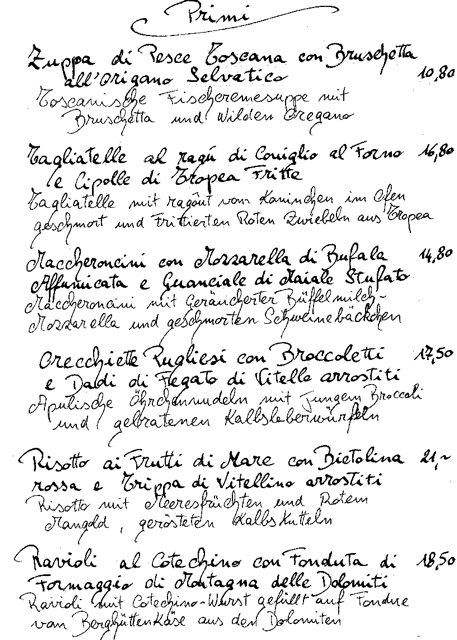 Primi
Zuppa di Pesce Toscana con Bruschetta
all'Origano Selvatico 10,80
Toscanische Fischcremesuppe mit
Bruschetta und Wilden Oregano
Tagliatelle al ragú di Coniglio al Forno 16,80
e Cipolle di Tropea Fritte
Tagliatelle mit ragôut vom Kaninchen im Ofen
geschmort und Frittierten Roten Zwiebeln aus Tropea
Maccheroncini con Mozzarella di Bufala 14,80
Affumicata e Guanciale di Maiale Stufato
Maccheroncini mit Geräucherter Büffelmilch-
Mozzarella und geschmorten Schweinebäckchen
Orecchiette Pugliesi con Broccoletti 17,50
e Dadi di Fegato di Vitello arrostiti
Apulische Öhrchennudeln mit Jungem Broccoli
und gebratenen Kalbsleberwürfeln
Risotto ai Frutti di Mare con Bietolina 21,~
rossa e Trippa di Vitellino arrostiti
Risotto mit Meeresfrüchten und Rotem
Mangold, gerösteten Kalbskutteln
Ravioli al Cotechino con Fonduta di 18,50
Formaggio di Montagna delle Dolomiti
Ravioli mit Cotechino-Wurst gefüllt auf Fondue
von Berghüttenkäse aus den Dolomiten